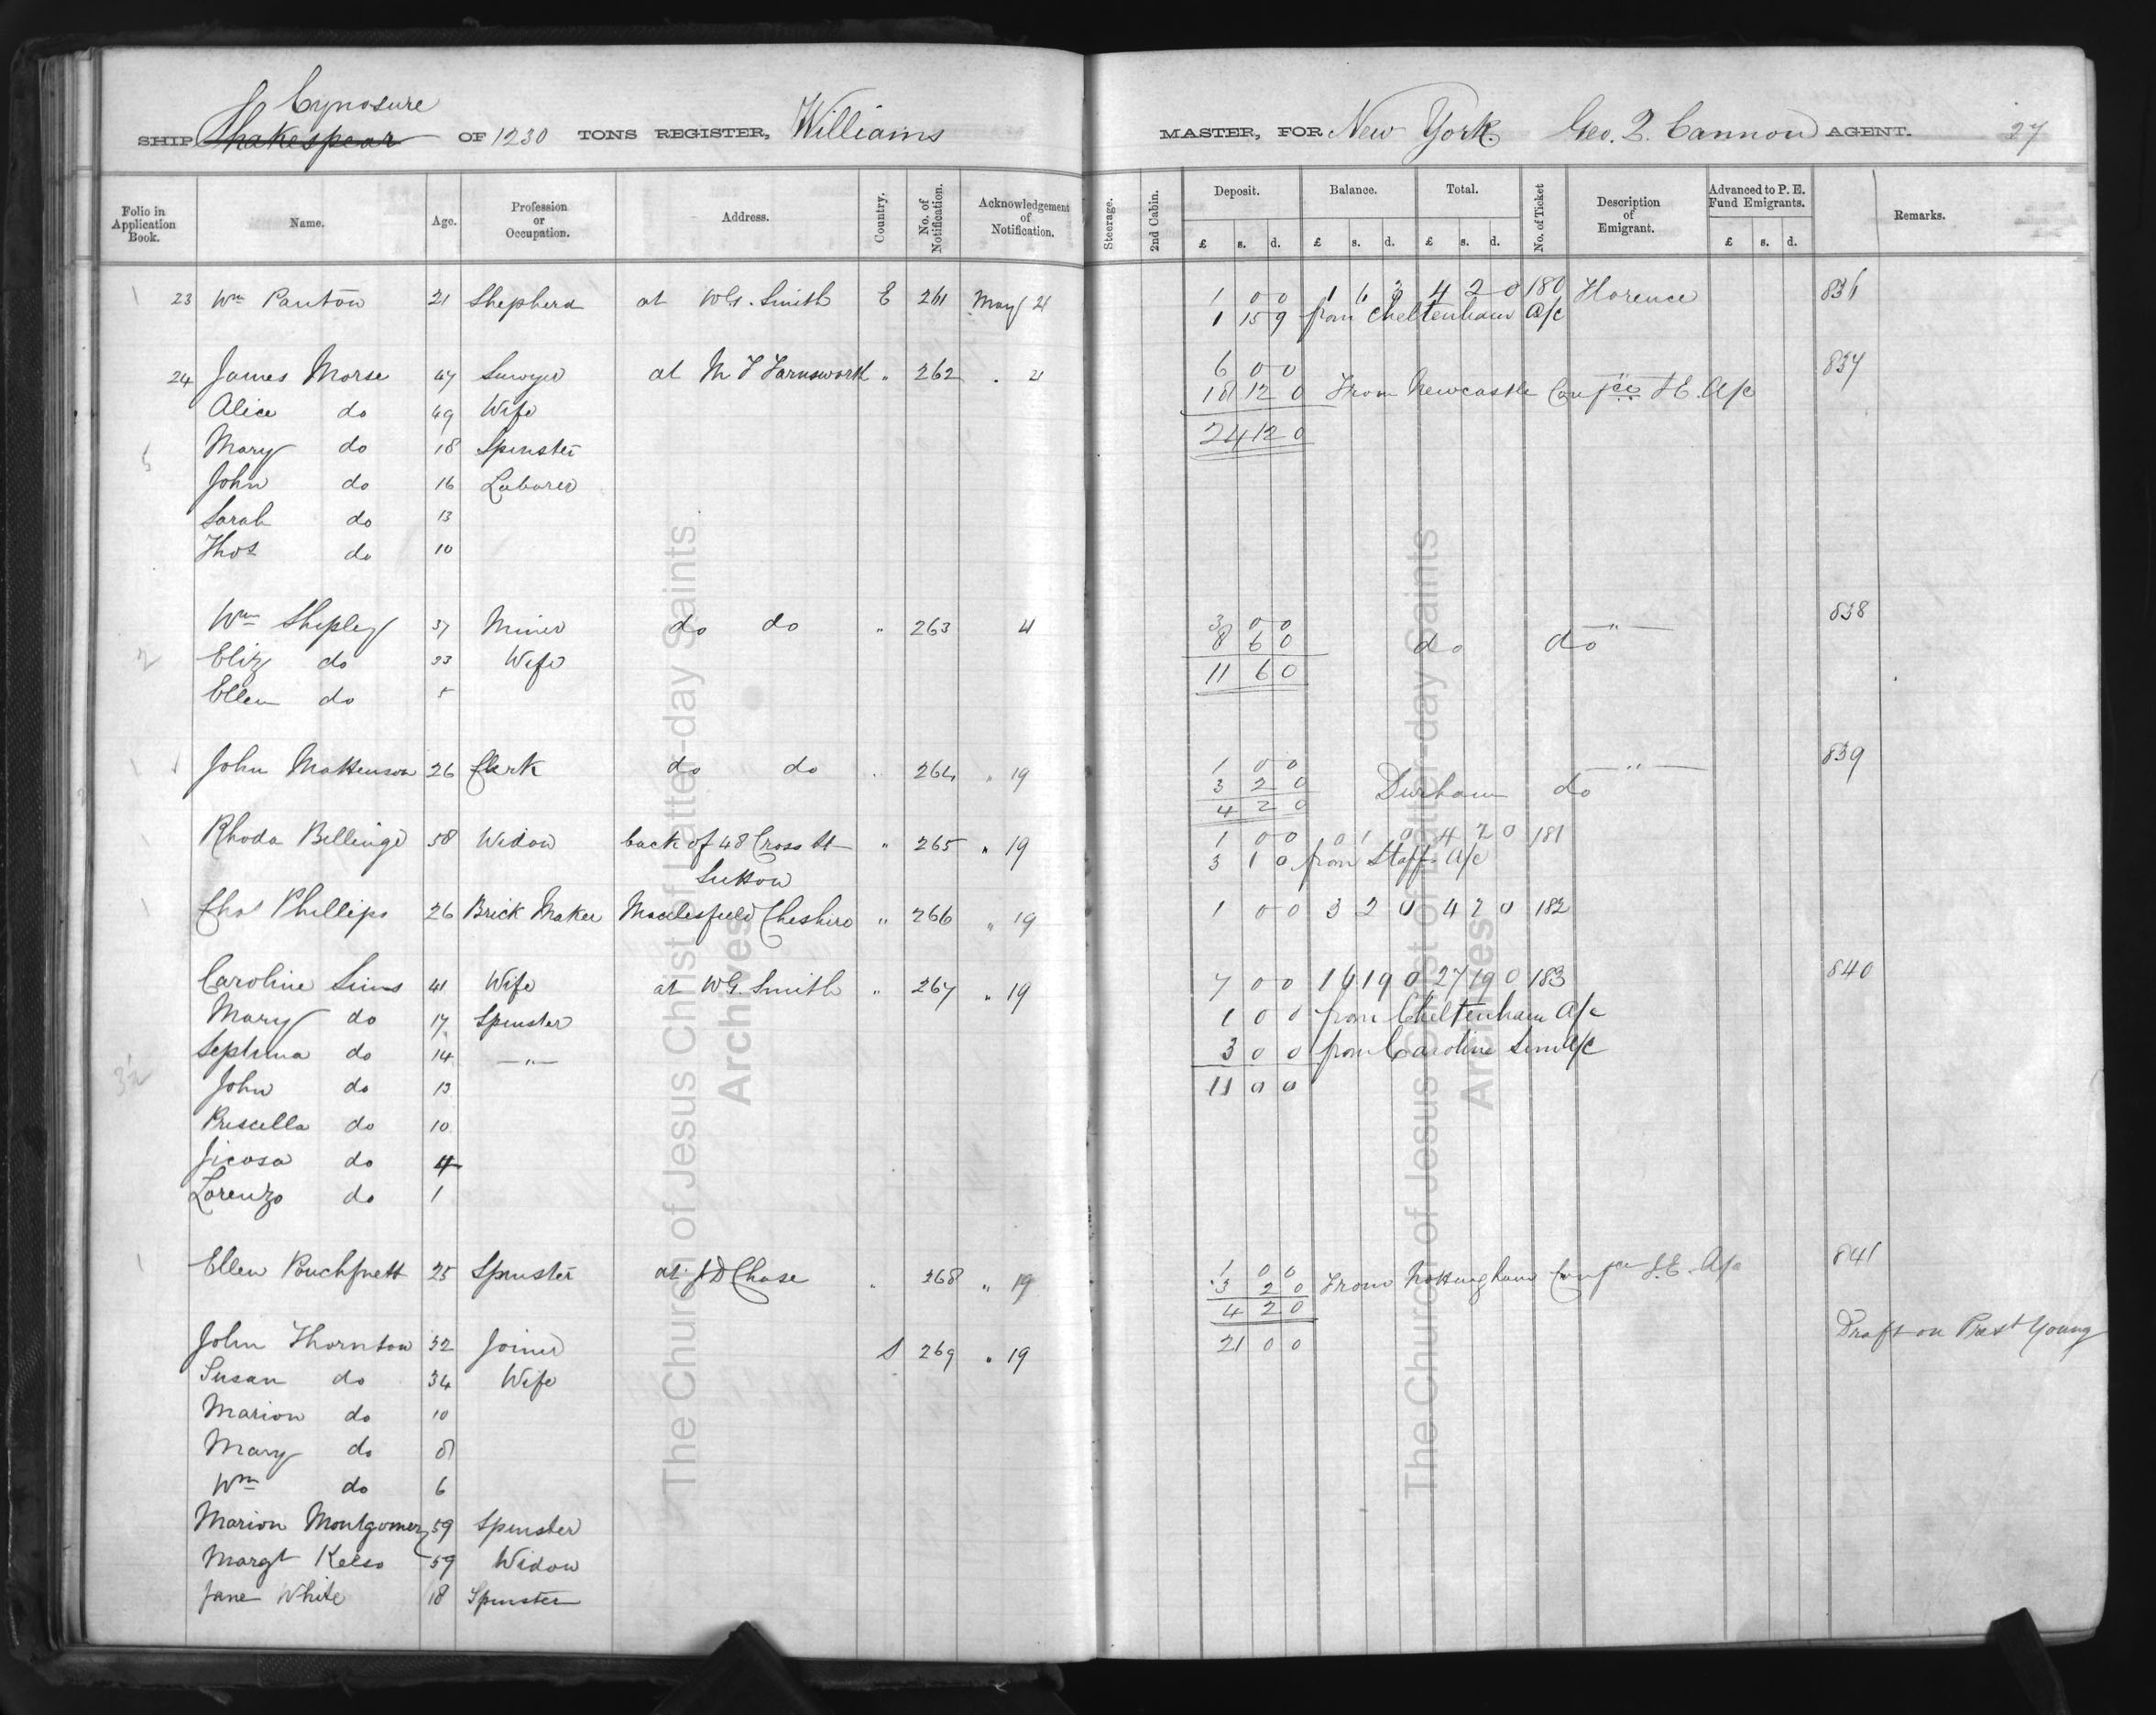 Cynosure
SHIP Shakespear OF 1230 TONS REGISTER, Williams MASTER, FOR New York Geo. Q. Cannon AGENT. 27
Folio in Application Book. Name. Age. Profession or Occupation. Address. Country. No. of Notification. Acknowledgement of Notification. Steerage. 2nd Cabin. Deposit. Balance. Total. No. of Ticket Description of Emigrant. Advanced to P. E. Fund Emigrants. Remarks.
£ s. d. £ s. d. £ s. d. £ s. d.
1 23 Wm Panton 21 Shepherd at W G. Smith E 261 May 21 1 0 0 1 6 3 4 2 0 180 Florence 836
1 15 9 from Cheltenham a/c
24 James Morse 47 Sawyer at M F Farnsworth " 262 . 21 6 0 0 837
18 12 0 From Newcastle Confce I.E. A/c
Alice do 49 Wife
24 12 0
Mary do 18 Spinster
5
John do 16 Laborer
Sarah do 13
Thos do 10
Wm Shipley 37 Miner do do " 263 21 3 0 0 " 838
8 6 0 do do
2 Eliz do 33 Wife
11 6 0
Ellen do 5
1 John Mattenson 26 Clerk do do . 264 " 19 1 0 0 " 839
3 2 0 Durham do
4 2 0
1 Rhoda Billinge 58 Widow back of 48 Cross St " 265 " 19 1 0 0 0 1 0 4 2 0 181
3 1 0 from Staff. a/c
Sutton
1 Chas Phillips 26 Brick Maker Macclesfield Cheshire " 266 " 19 1 0 0 3 2 0 4 2 0 182
Caroline Sims 41 Wife at W G. Smith " 267 " 19 7 0 0 16 19 0 27 19 0 183 840
Mary do 17 Spinster 1 0 0 from Cheltenham a/c
Septima do 14 " 3 0 0 from Caroline Sims a/c
John do 13 11 0 0
Priscella do 10
Jicosa do 4
Lorenzo do 1
1 Ellen Pouchfrett 25 Spinster at J D Chase . 268 " 19 1 0 0 841
3 2 0 From Nottingham Confce I.E. A/c
4 2 0
John Thornton 32 Joiner S 269 " 19 21 0 0 Draft on Prest Young
Susan do 34 Wife
Marion do 10
Mary do 8
Wm do 6
Marion Montgomery 59 Spinster
Margt Kelso 59 Widow
Jane White 18 Spinster
The Church of Jesus Christ of Latter-day Saints
Archives
The Church of Jesus Christ of Latter-day Saints
Archives